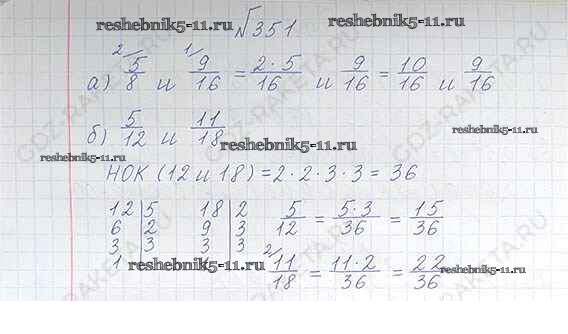 reshebnik5-11.ru №351 reshebnik5-11.ru
а) 2/ 5/8 и 1/ 9/16 = 2·5/16 и 9/16 = 10/16 и 9/16
б) 5/12 и 11/18 reshebnik5-11.ru
reshebnik5-11.ru
НОК (12 и 18) = 2·2·3·3 = 36
12|5 18|2 5/12 = 5·3/36 = 15/36
6|2 9|3
3|3 3|3
1 reshebnik5-11.ru 2/ 11/18 = 11·2/36 = 22/36 reshebnik5-11.ru
GDZ-RAKETA.RU